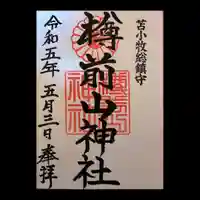 苫小牧総鎮守
樽前山神社
令和五年五月三日奉拝